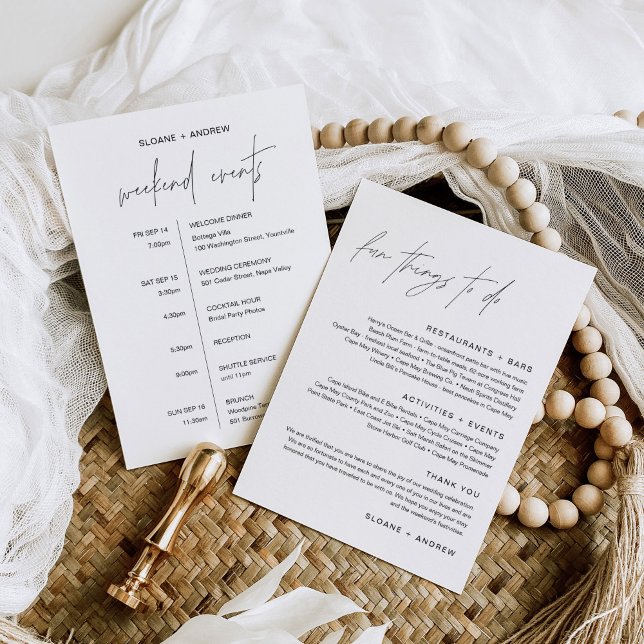 SLOANE + ANDREW
weekend events
FRI SEP 14
7:00pm
WELCOME DINNER
Bottega Villa
100 Washington Street, Yountville
SAT SEP 15
3:30pm
WEDDING CEREMONY
501 Cedar Street, Napa Valley
4:30pm
COCKTAIL HOUR
Bridal Party Photos
5:30pm
RECEPTION
9:00pm
SHUTTLE SERVICE
until 11pm
SUN SEP 16
11:30am
BRUNCH
Woodpine
501
fun things to do
RESTAURANTS + BARS
Harry's Ocean Bar & Grille - oceanfront patio bar with live music
Beach Plum Farm - farm-to-table meals, 62-acre working farm
Oyster Bay - freshest local seafood • The Blue Pig Tavern at Congress Hall
Cape May Winery • Cape May Brewing Co. • Nauti Spirits Distillery
Uncle Bill's Pancake House - best pancakes in Cape May
ACTIVITIES + EVENTS
Cape Island Bike and E Bike Rentals • Cape May Carriage Company
Cape May County Park and Zoo • Cape May Cycle Cruises • Cape May
Point State Park • East Coast Jet Ski • Salt Marsh Safari on the Skimmer
Stone Harbor Golf Club • Cape May Promenade
THANK YOU
We are thrilled that you are here to share the joy of our wedding celebration.
We are so fortunate to have each and every one of you in our lives and are
honored that you have travelled to be with us. We hope you enjoy your stay
and the weekend's festivities.
SLOANE + ANDREW